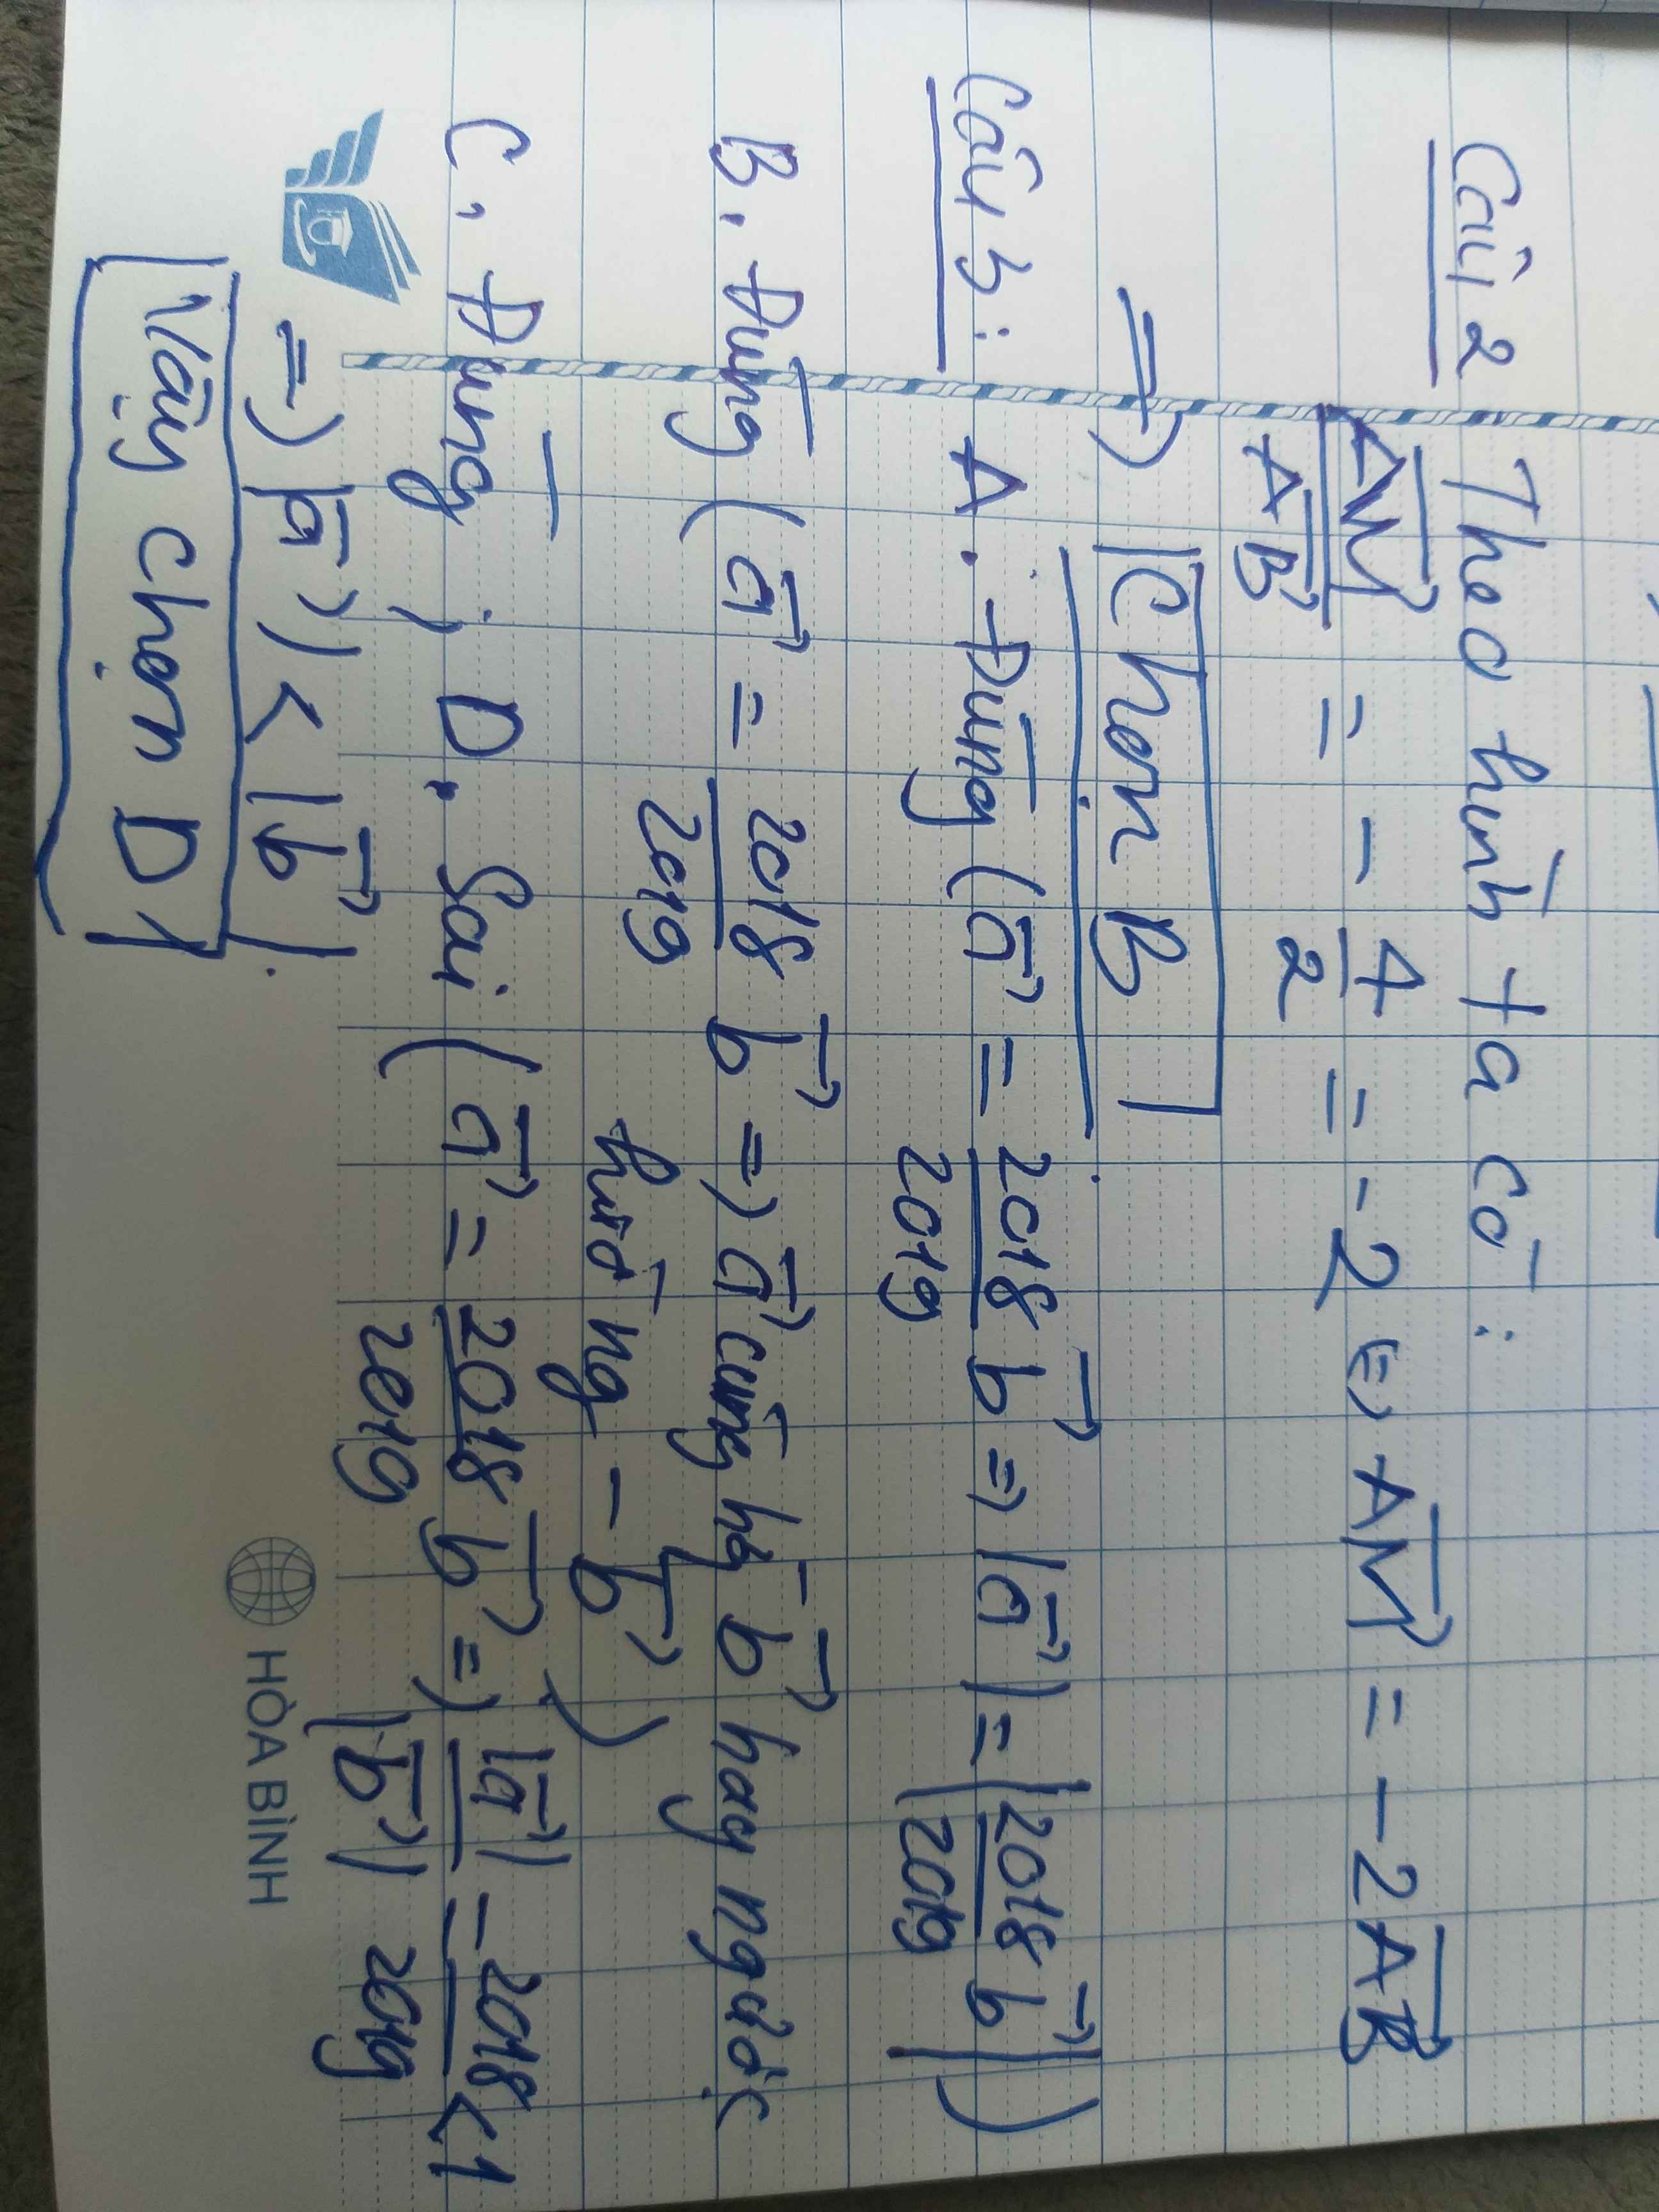 Câu 2 Theo hình ta có:
\frac{\overrightarrow{AM}}{\overrightarrow{AB}} = -\frac{4}{2} = -2 ⇔ \overrightarrow{AM} = -2\overrightarrow{AB}
⇒ Chọn B
Câu 3: A. Đúng (\vec{a} = \frac{2018}{2019}\vec{b} ⇒ |\vec{a}| = |\frac{2018}{2019}\vec{b}|)
B. Đúng (\vec{a} = \frac{2018}{2019}\vec{b} ⇒ \vec{a} cùng hg \vec{b} hay ngược
hướng -\vec{b})
C. Đúng; D. Sai (\vec{a} = \frac{2018}{2019}\vec{b} ⇒ \frac{|\vec{a}|}{|\vec{b}|} = \frac{2018}{2019} < 1
⇒ |\vec{a}| < |\vec{b}|.
Vậy chọn D
HÒA BÌNH